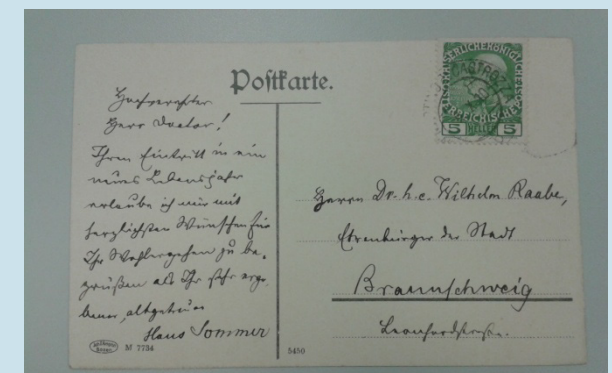 Postkarte.
Hochverehrter
Herr Doctor!
Ihren Eintritt in ein
neues Lebensjahr
erlaube ich mir mit
herzlichsten Wünschen für
Ihr Wohlergehen zu be-
grüßen als Ihr sehr erge-
bener, altgetreuer
Hans Sommer
M 7734
5450
5 HELLER 5
Herrn Dr. h. c. Wilhelm Raabe,
Ehrenbürger der Stadt
Braunschweig
Leonhardstraße.